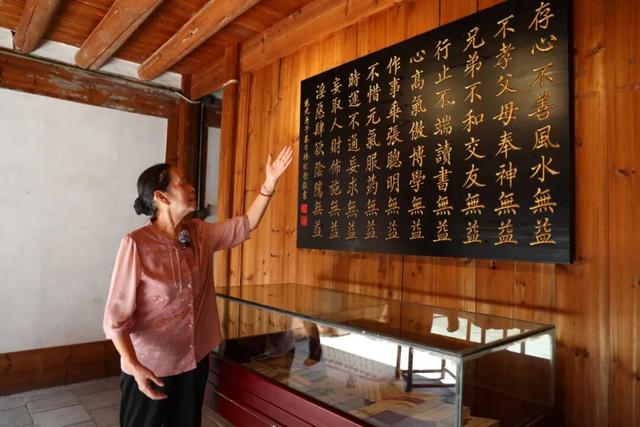 存心不善風水無益
不孝父母奉神無益
兄弟不和交友無益
行止不端讀書無益
心高氣傲博學無益
作事乖張聰明無益
不惜元氣服藥無益
時運不通妄求無益
妄取人財佈施無益
淫惡肆欲陰騭無益
林則徐敬書